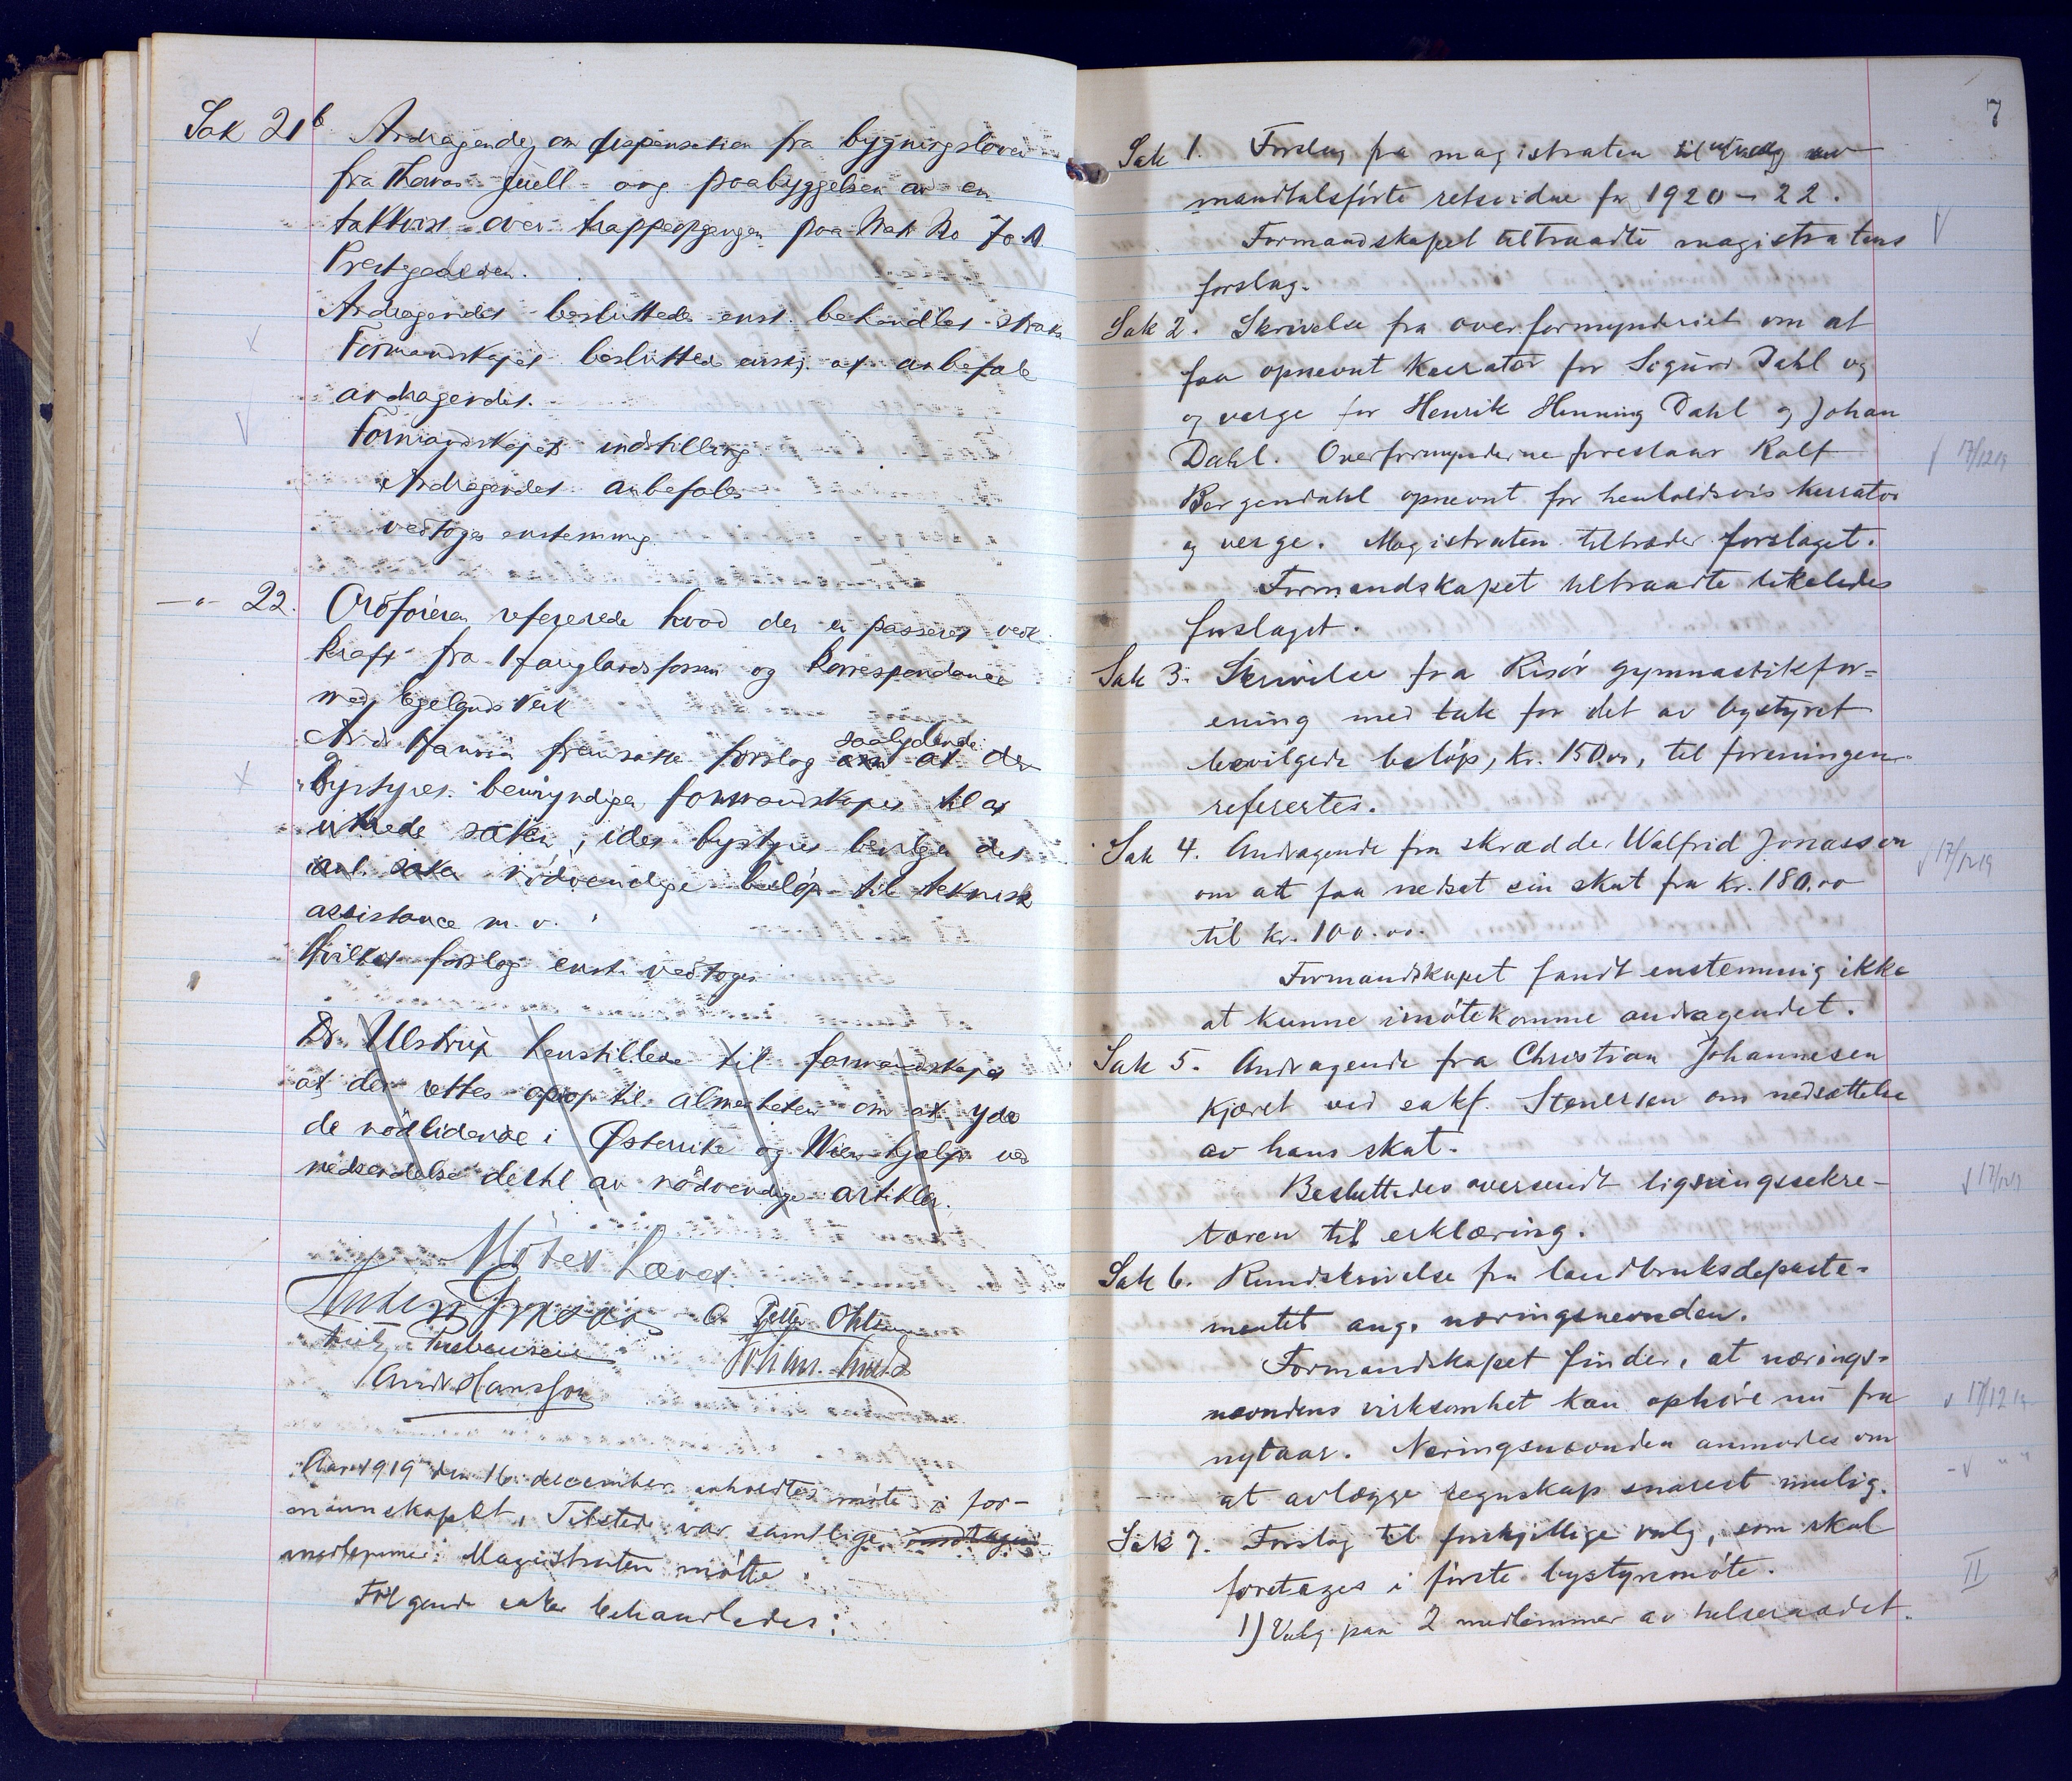 Sak 21b Andragende om dispensation fra bygningsloven
fra Thomas Juell ang paabyggelsen av en
takkvist over trappeopgangen paa Matr No 70 A
Prestegaden.
Andragendet besluttedes enst. behandlet straks
Formandskapet besluttet enst. at anbefale
andragendet.
Formandskapets indstilling
Andragendet anbefales
vedtoges enstemmig
—"— 22. Ordføreren refererede hvad der er passeret vedk.
kraft fra Hauglandsfossen og korrespondance
med Egelands Verk
Andr Hansson fremsatte forslag saalydende:
"Bystyret bemyndiger formandskapet til at
utrede saken, idet bystyret bevilger det
ant. saka nödvendige belöp til teknisk
assistance m.v.
Hvilket forslag enst. vedtoges
Dr. Ulstrup henstillede til formandskapet
at der rettes oprop til almenheten om at yde
de nödlidende i Østerrike og Wien hjælp ved
nedsendelse dertil av nödvendige artikler.
Mötet hævet.
O. Peller Ohlsen
Andr Hansson
Aar 1919 den 16 december avholdtes möte i for-
mannskapet. Tilstede var samtlige
medlemmer. Magistraten mötte.
Följgende saker behandledes:
7
Sak 1. Forslag fra magistraten til utvalg av
mandtalsförte retsvidne for 1920 - 22.
Formandskapet tiltraadte magistratens
forslag.
Sak 2. Skrivelse fra overformynderiet om at
faa opnevnt kurator for Sigurd Dahl og
og verge for Henrik Henning Dahl og Johan
Dahl. Overformynderne foreslaar Ralf
17/12 19
Bergendahl opnevnt for henholdsvis kurator
og verge. Magistraten tiltræder forslaget.
Formandskapet tiltraadte likeledes
forslaget.
Sak 3. Skrivelse fra Risör gymnastikfor-
ening med tak for det av bystyret
bevilgede belöp, kr. 150.00, til foreningen
referertes.
Sak 4. Andragende fra skrædder Walfrid Jonasson
17/12 19
om att faa nedsat sin skat fra kr. 180.00
til kr. 100.00.
Formandskapet fandt enstemmig ikke
at kunne imötekomme andragendet.
Sak 5. Andragende fra Christian Johannesen
Kjæret ved sakf. Stenersen om nedsættelse
av hans skat.
Besluttedes oversendt ligningssekre-
17/12 19
tæren til erklæring.
Sak 6. Rundskrivelse fra landbruksdeparte-
mentet ang. næringsnevnden.
Formandskapet finder, at nærings-
nævndens virksomhet kan ophöre nu fra
17/12 19
nytaar. Næringsnævnden anmodes om
at avlægge regnskap snarest mulig.
Sak 7. Forslag til forskjellige valg, som skal
foretages i förste bystyremöte.
II
1) Valg paa 2 medlemmer av helseraadet.